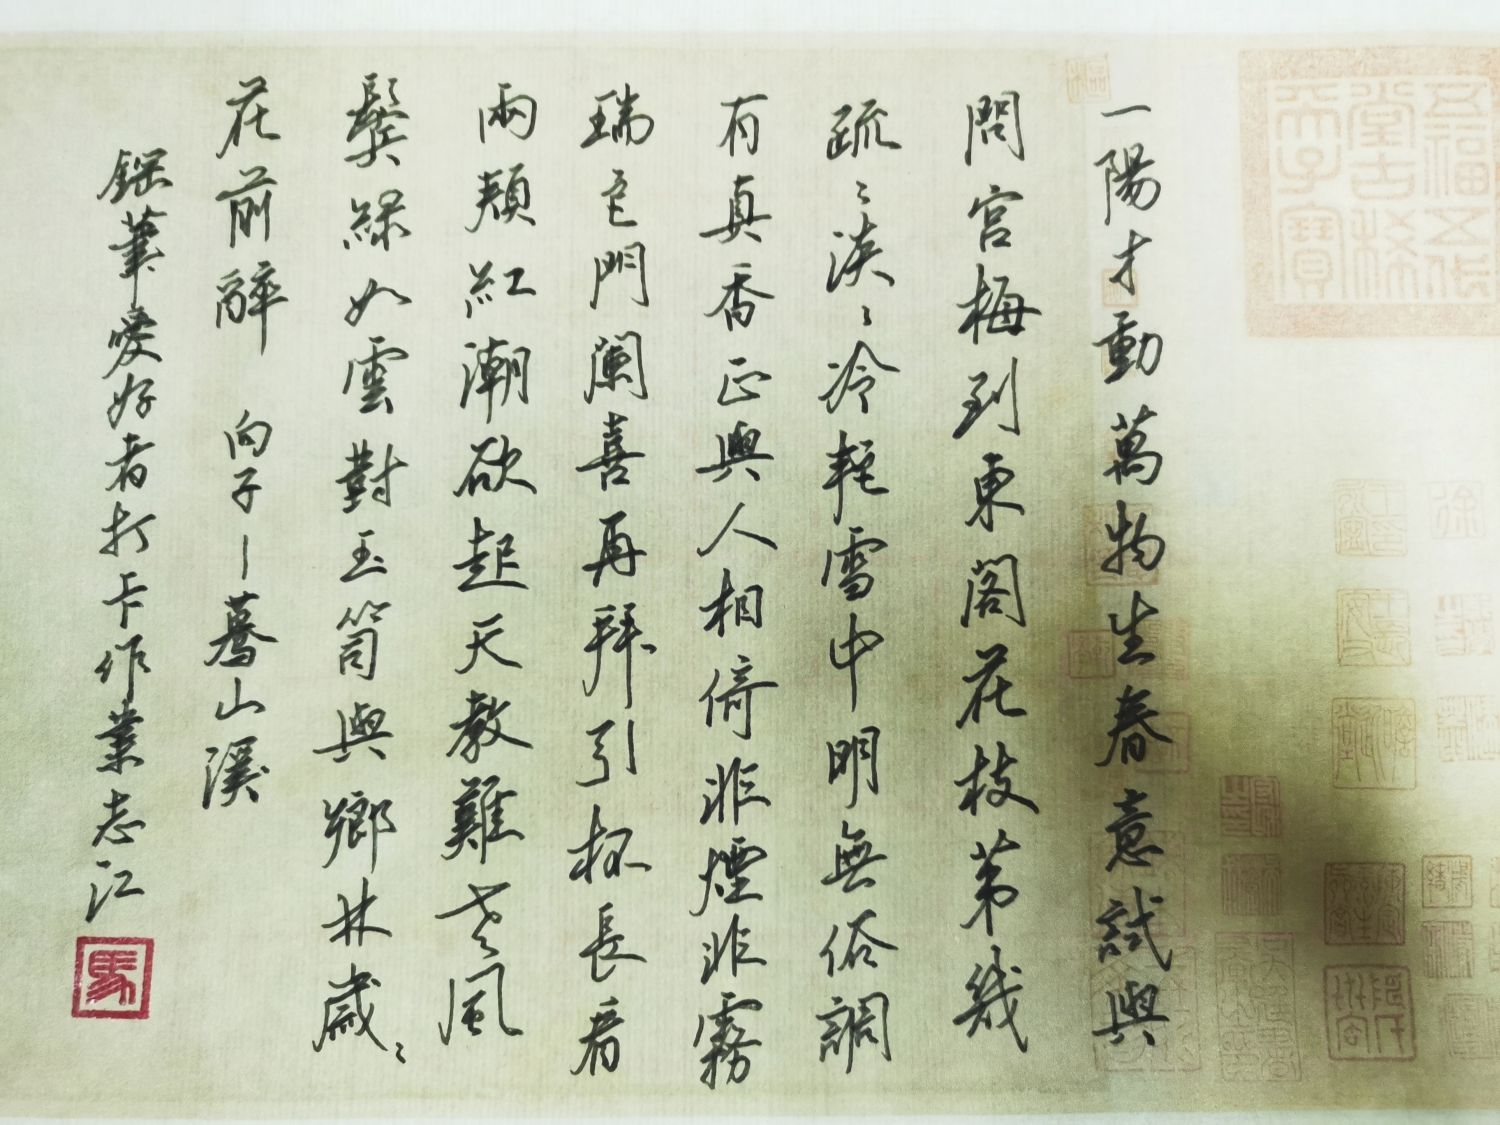 五福五代
堂古稀
天子寶
一陽才動萬物生春意試與
問宮梅到東閣花枝第幾
疏〻淡〻冷艷雪中明無俗調
有真香正與人相倚非煙非霧
瑞色門闌喜再拜引杯長看
兩頰紅潮欲起天教難老風
鬢綠如雲對玉筍與鄉林歲〻
花前醉 向子—驀山溪
鋼筆愛好者打卡作業志江
馬